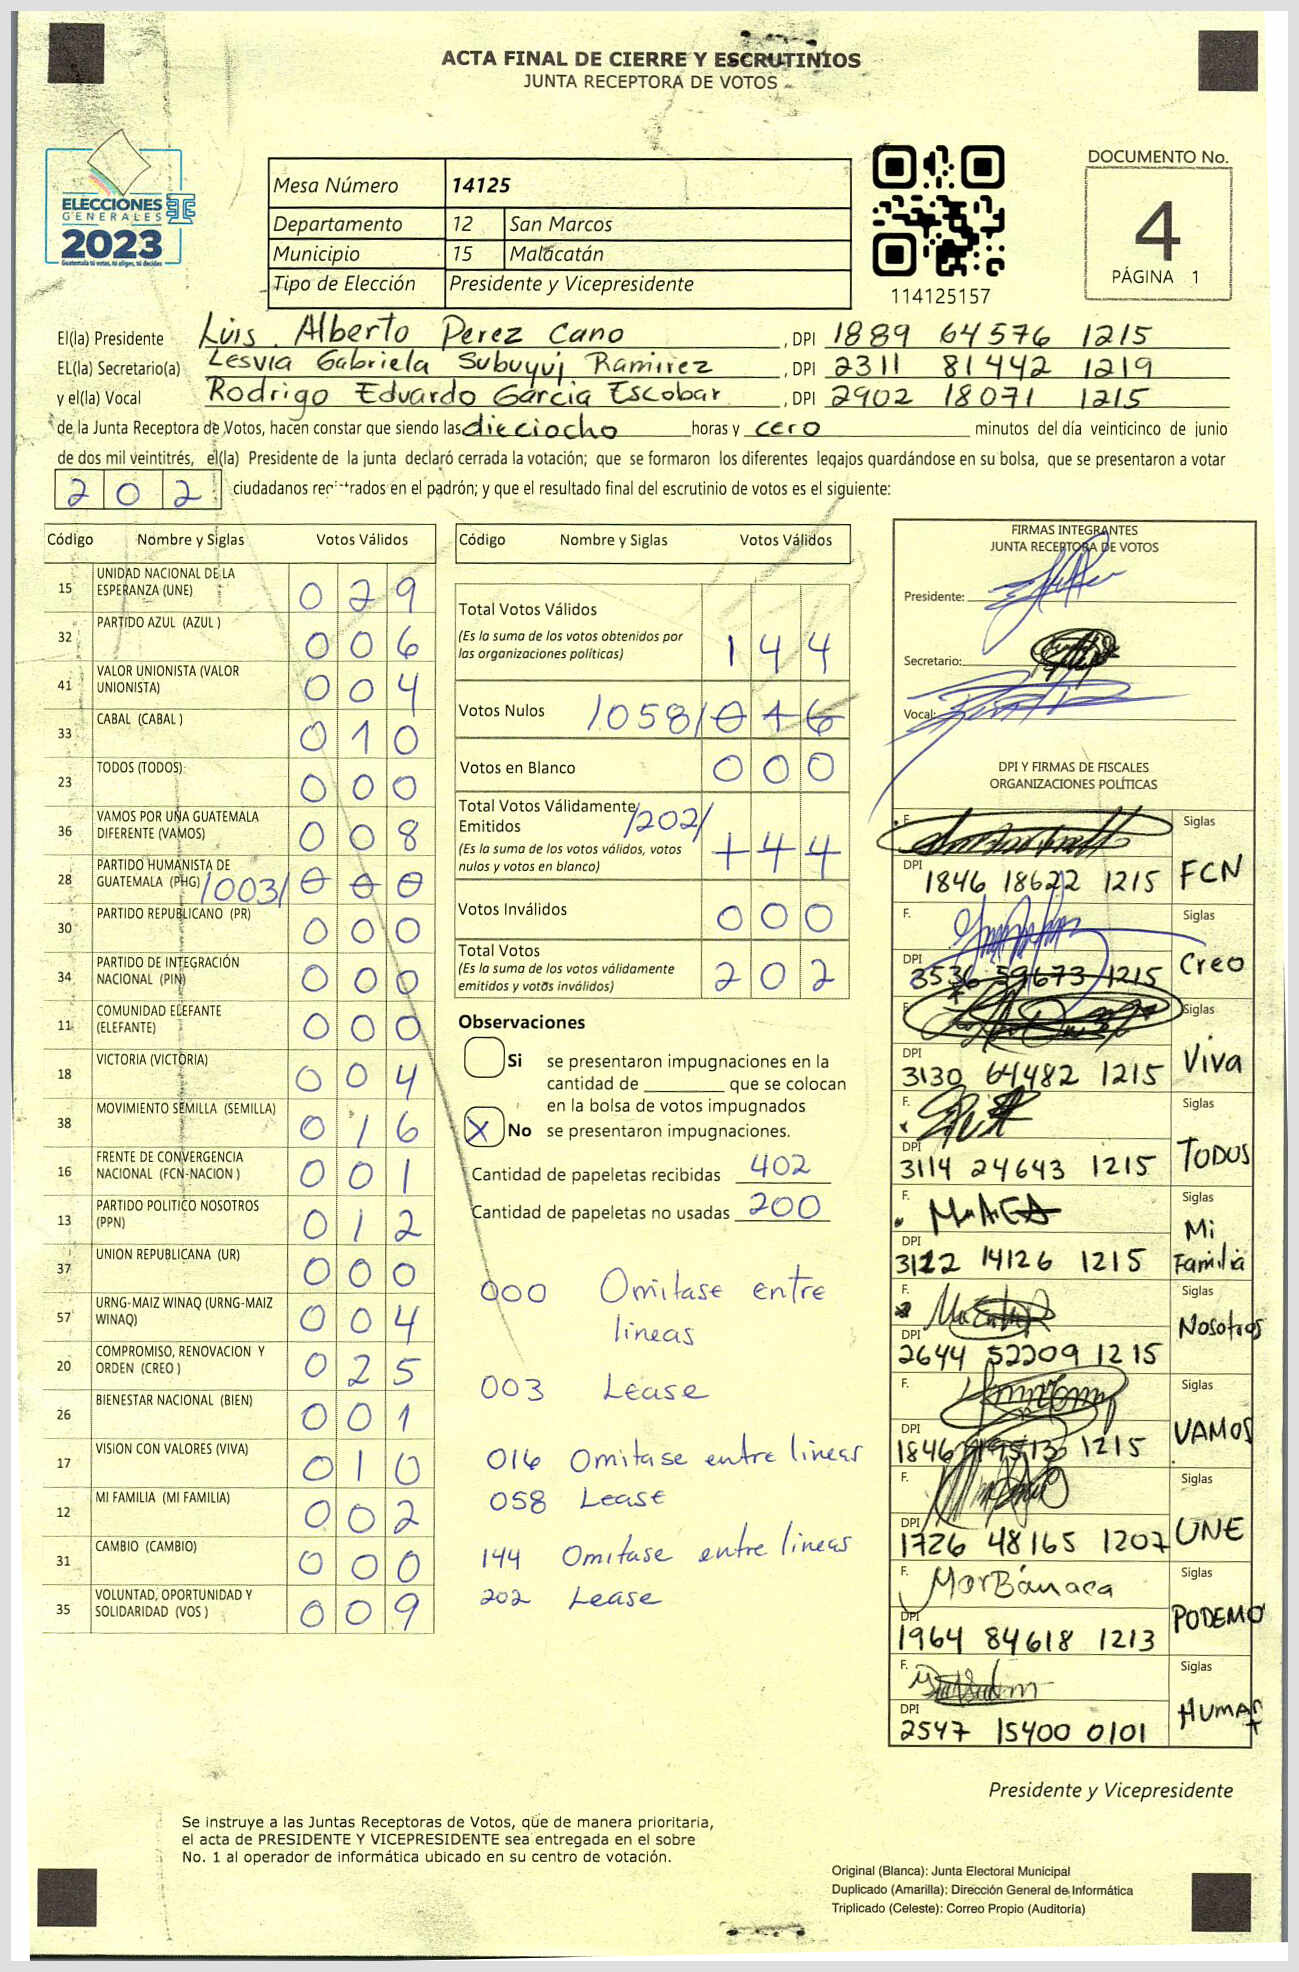 ACTA FINAL DE CIERRE Y ESCRUTINIOS
JUNTA RECEPTORA DE VOTOS
ELECCIONES
GENERALES
2023
Guatemala tú votas, tú eliges, tú decides
Mesa Número 14125
Departamento 12 San Marcos
Municipio 15 Malacatán
Tipo de Elección Presidente y Vicepresidente
114125157
DOCUMENTO No.
4
PÁGINA 1
El(la) Presidente Luis Alberto Perez Cano , DPI 1889 64576 1215
EL(la) Secretario(a) Lesvia Gabriela Subuyuj Ramirez , DPI 2311 81442 1219
y el(la) Vocal Rodrigo Eduardo Garcia Escobar , DPI 2902 18071 1215
de la Junta Receptora de Votos, hacen constar que siendo las dieciocho horas y cero minutos del día veinticinco de junio
de dos mil veintitrés, el(la) Presidente de la junta declaró cerrada la votación; que se formaron los diferentes legajos guardándose en su bolsa, que se presentaron a votar
202 ciudadanos registrados en el padrón; y que el resultado final del escrutinio de votos es el siguiente:
Código Nombre y Siglas Votos Válidos
15 UNIDAD NACIONAL DE LA ESPERANZA (UNE) 029
32 PARTIDO AZUL (AZUL ) 006
41 VALOR UNIONISTA (VALOR UNIONISTA) 004
33 CABAL (CABAL ) 010
23 TODOS (TODOS) 000
36 VAMOS POR UNA GUATEMALA DIFERENTE (VAMOS) 008
28 PARTIDO HUMANISTA DE GUATEMALA (PHG) /003/ 000
30 PARTIDO REPUBLICANO (PR) 000
34 PARTIDO DE INTEGRACIÓN NACIONAL (PIN) 000
11 COMUNIDAD ELEFANTE (ELEFANTE) 000
18 VICTORIA (VICTORIA) 004
38 MOVIMIENTO SEMILLA (SEMILLA) 016
16 FRENTE DE CONVERGENCIA NACIONAL (FCN-NACION ) 001
13 PARTIDO POLITICO NOSOTROS (PPN) 012
37 UNION REPUBLICANA (UR) 000
57 URNG-MAIZ WINAQ (URNG-MAIZ WINAQ) 004
20 COMPROMISO, RENOVACION Y ORDEN (CREO ) 025
26 BIENESTAR NACIONAL (BIEN) 001
17 VISION CON VALORES (VIVA) 010
12 MI FAMILIA (MI FAMILIA) 002
31 CAMBIO (CAMBIO) 000
35 VOLUNTAD, OPORTUNIDAD Y SOLIDARIDAD (VOS ) 009
Código Nombre y Siglas Votos Válidos
Total Votos Válidos 144
(Es la suma de los votos obtenidos por
las organizaciones políticas)
Votos Nulos /058/ 016
Votos en Blanco 000
Total Votos Válidamente
Emitidos /202/ 144
(Es la suma de los votos válidos, votos
nulos y votos en blanco)
Votos Inválidos 000
Total Votos 202
(Es la suma de los votos válidamente
emitidos y votos inválidos)
Observaciones
Si se presentaron impugnaciones en la
cantidad de ________ que se colocan
en la bolsa de votos impugnados
X No se presentaron impugnaciones.
Cantidad de papeletas recibidas 402
Cantidad de papeletas no usadas 200
000 Omitase entre
lineas
003 Lease
016 Omitase entre lineas
058 Lease
144 Omitase entre lineas
202 Lease
FIRMAS INTEGRANTES
JUNTA RECEPTORA DE VOTOS
Presidente:
Secretario:
Vocal:
DPI Y FIRMAS DE FISCALES
ORGANIZACIONES POLÍTICAS
F. Siglas
DPI 1846 18622 1215 FCN
F. Siglas
DPI 3536 59673 1215 Creo
F. Siglas
DPI 3130 64482 1215 Viva
F. Siglas
DPI 3114 24643 1215 TODOS
F. Siglas
DPI 3122 14126 1215 Mi Familia
F. Siglas
DPI 2644 52209 1215 Nosotros
F. Siglas
DPI 1846 1215 VAMOS
F. Siglas
DPI 1726 48165 1207 UNE
F. Siglas
DPI 1964 84618 1213 PODEMO
F. Siglas
DPI 2547 15400 0101 HUMAN
Presidente y Vicepresidente
Se instruye a las Juntas Receptoras de Votos, que de manera prioritaria,
el acta de PRESIDENTE Y VICEPRESIDENTE sea entregada en el sobre
No. 1 al operador de informática ubicado en su centro de votación.
Original (Blanca): Junta Electoral Municipal
Duplicado (Amarilla): Dirección General de Informática
Triplicado (Celeste): Correo Propio (Auditoría)